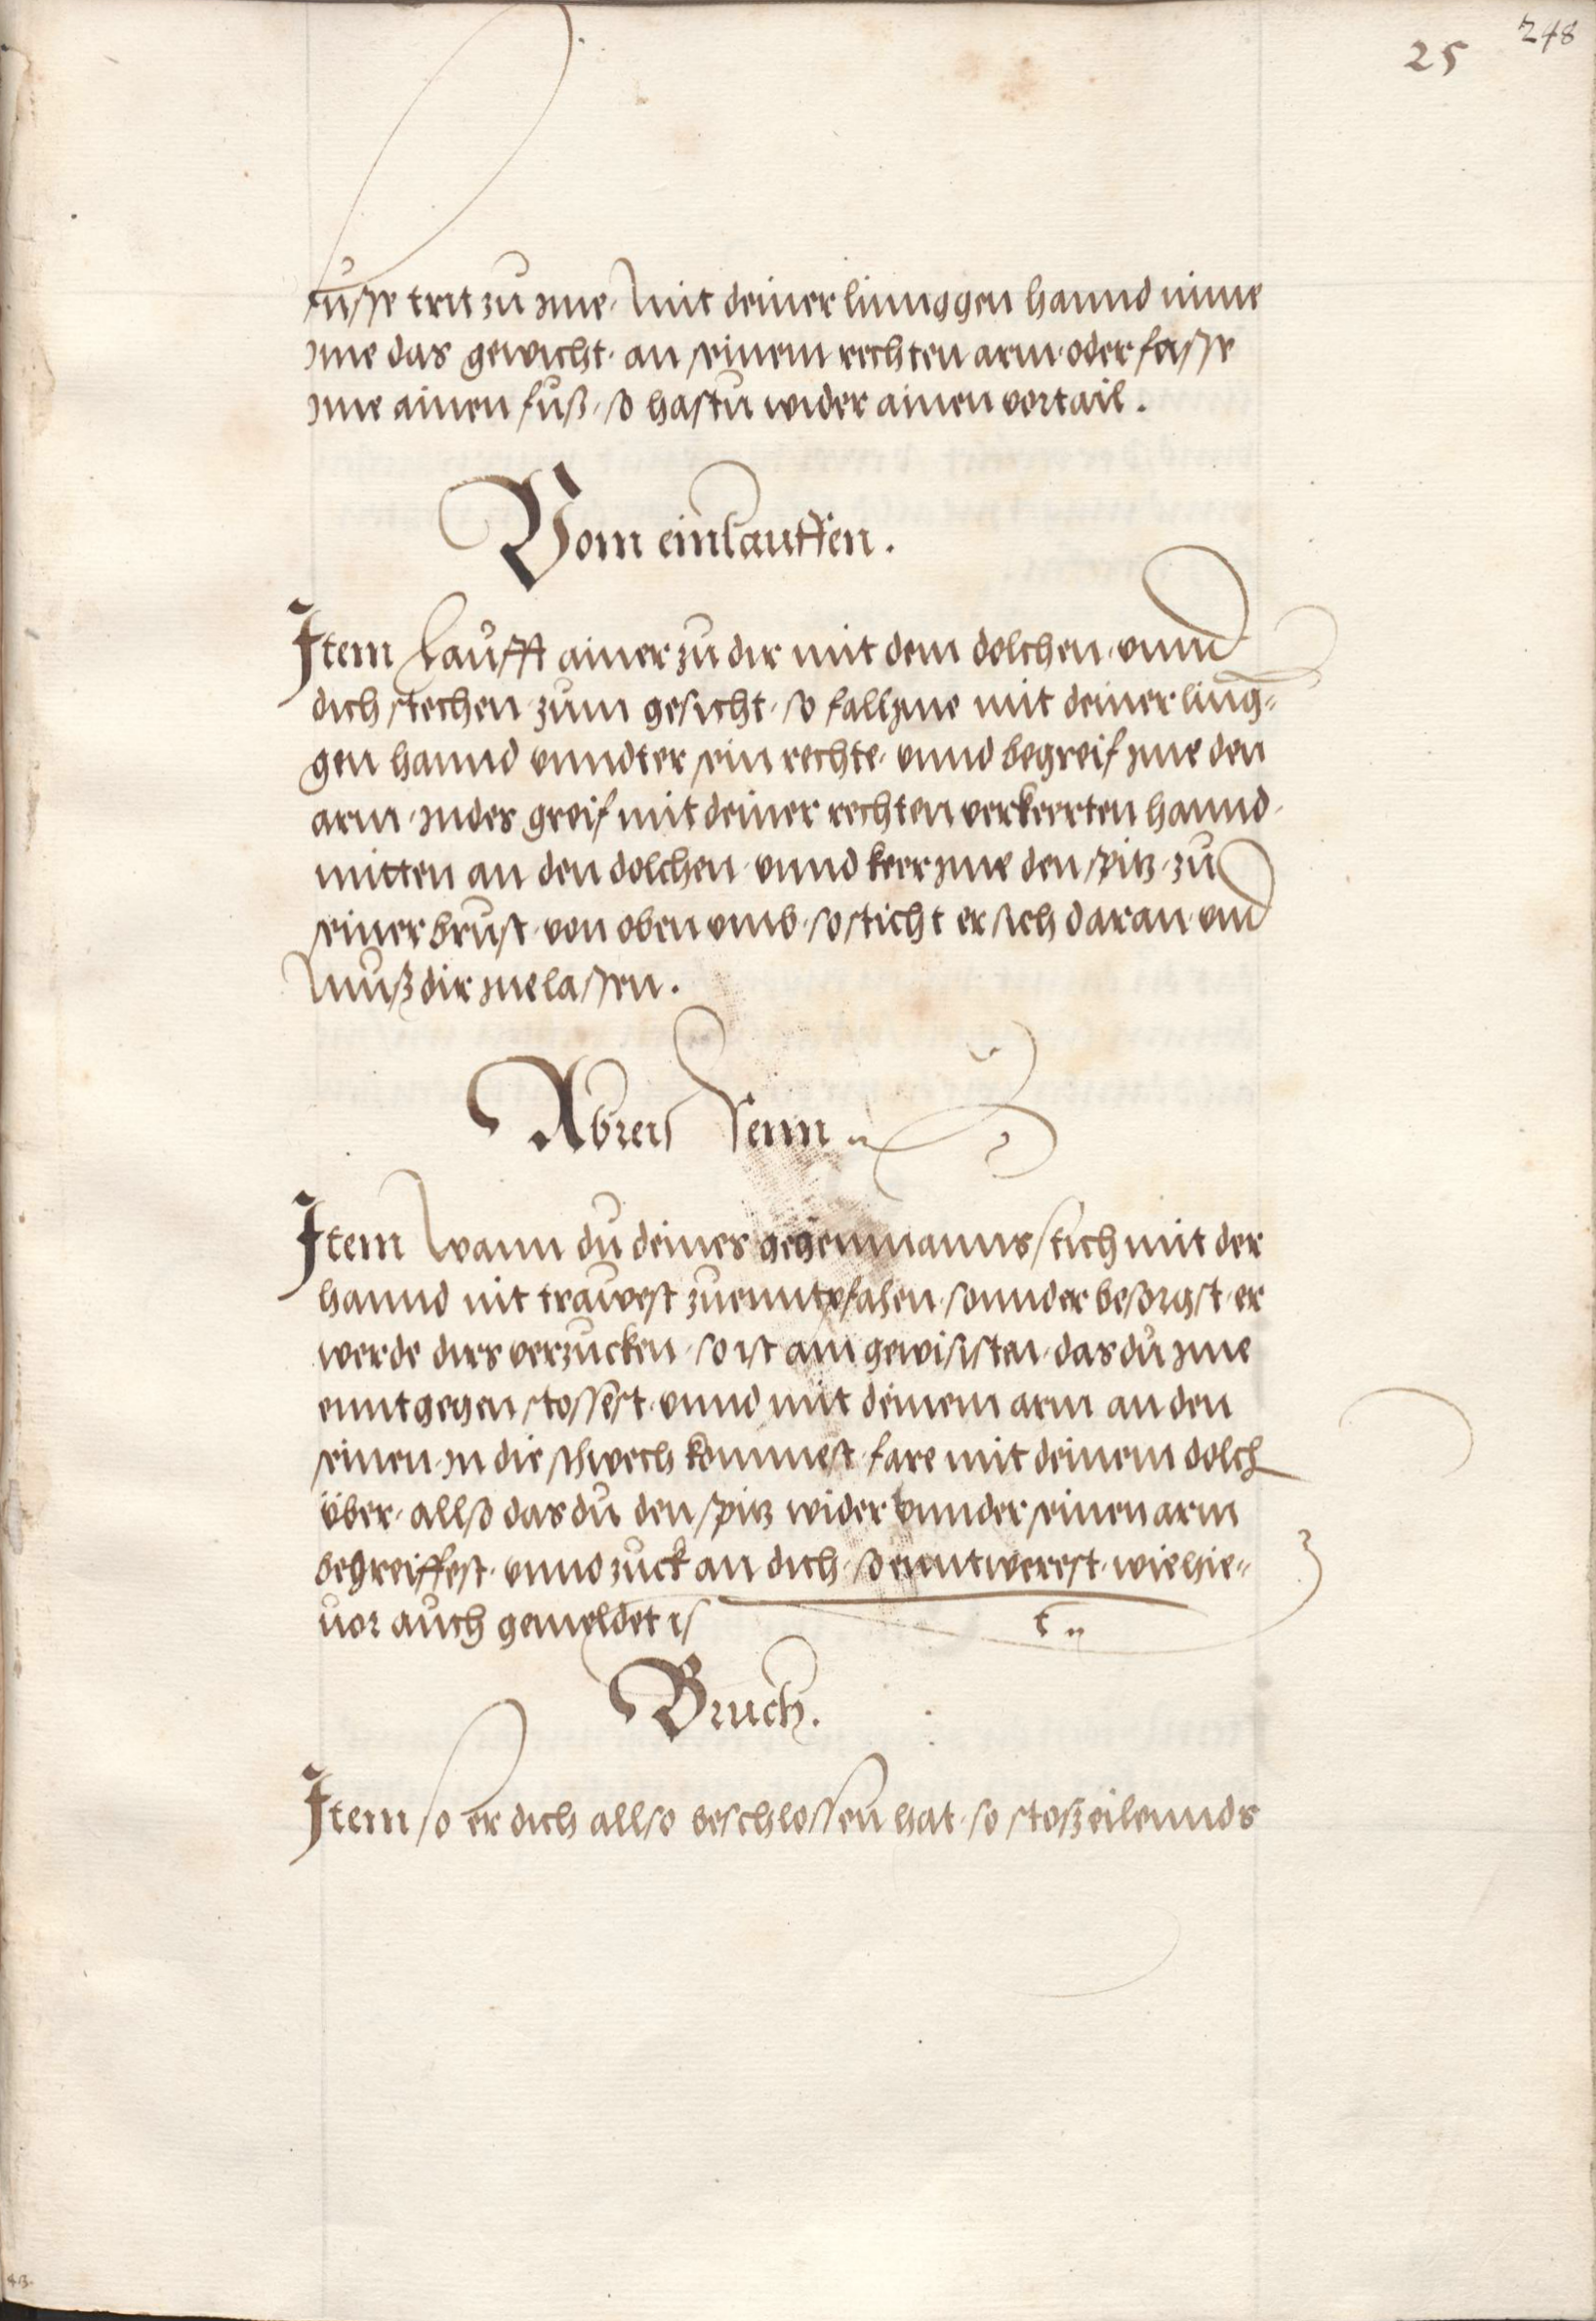 248
25
fuͦsse trit zuͦ jme, Mit deiner linnggen hannd nime
jme das gewicht, an seinem rechten arm, oder fasse
jme ainen fuͦß, so hastu wider ainen vortail.
Vom einlauffen.
Item Laufft ainer zuͦ dir mit dem dolchen, vnnd
dich stechen, zum gesicht, so fall jme mit deiner ling=
gen hannd vnndter sein rechte, vnnd begreif jme den
arm, jndes greif mit deiner rechten verkeerten hannd,
mitten an den dolchen, vnnd keer jme den spitz, zuͦ
seiner brust, von oben vmb, so sticht er sich daran, vnd
Muͦß dir jne lassen.
Abreissenn
Item Wann du deines gegenmanns stich mit der
hannd nit trawest zuenntpfahen, sonnder besorgst, er
werde dirs verzucken, so ist am gewisisten, das du jme
enntgegen stossest, vnnd mit deinem arm an den
seinen, jn die schwech kommest, fare mit deinem dolch
über, allso das du den spitz wider vnnder seinen arm
begreiffest, vnnd zuck an dich, so enntwerest, wie hie=
uor auch gemeldet ist
Bruch.
Item so er dich allso beschlossen hat, so stoß eilennds
43.